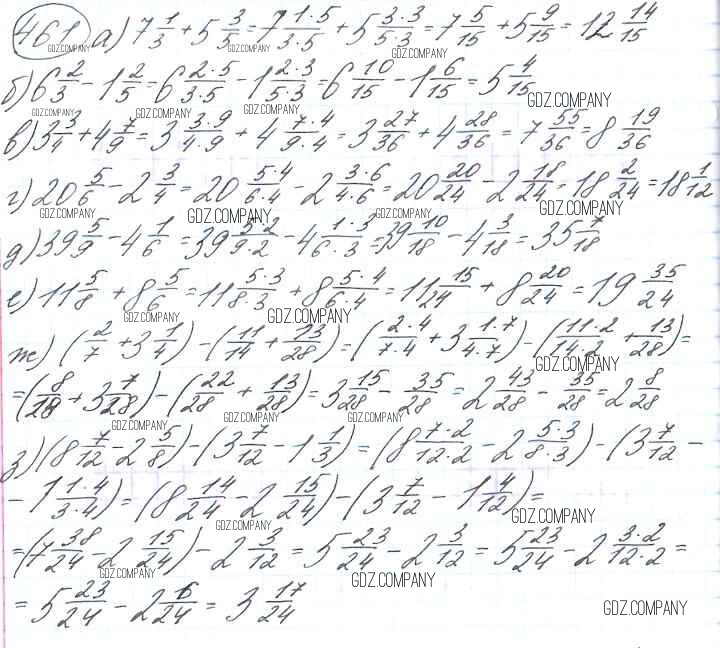 461 а) 7 1/3 + 5 3/5 = 7 1·5/3·5 + 5 3·3/5·3 = 7 5/15 + 5 9/15 = 12 14/15
б) 6 2/3 - 1 2/5 = 6 2·5/3·5 - 1 2·3/5·3 = 6 10/15 - 1 6/15 = 5 4/15
в) 3 3/4 + 4 7/9 = 3 3·9/4·9 + 4 7·4/9·4 = 3 27/36 + 4 28/36 = 7 55/36 = 8 19/36
г) 20 5/6 - 2 3/4 = 20 5·4/6·4 - 2 3·6/4·6 = 20 20/24 - 2 18/24 = 18 2/24 = 18 1/12
д) 39 5/9 - 4 1/6 = 39 5·2/9·2 - 4 1·3/6·3 = 39 10/18 - 4 3/18 = 35 7/18
е) 11 5/8 + 8 5/6 = 11 5·3/8·3 + 8 5·4/6·4 = 11 15/24 + 8 20/24 = 19 35/24
ж) (2/7 + 3 1/4) - (11/14 + 13/28) = (2·4/7·4 + 3 1·7/4·7) - (11·2/14·2 + 13/28) =
= (8/28 + 3 7/28) - (22/28 + 13/28) = 3 15/28 - 35/28 = 2 43/28 - 35/28 = 2 8/28
з) (8 7/12 - 2 5/8) - (3 7/12 - 1 1/3) = (8 7·2/12·2 - 2 5·3/8·3) - (3 7/12 -
- 1 1·4/3·4) = (8 14/24 - 2 15/24) - (3 7/12 - 1 4/12) =
= (7 38/24 - 2 15/24) - 2 3/12 = 5 23/24 - 2 3/12 = 5 23/24 - 2 3·2/12·2 =
= 5 23/24 - 2 6/24 = 3 17/24
GDZ.COMPANY